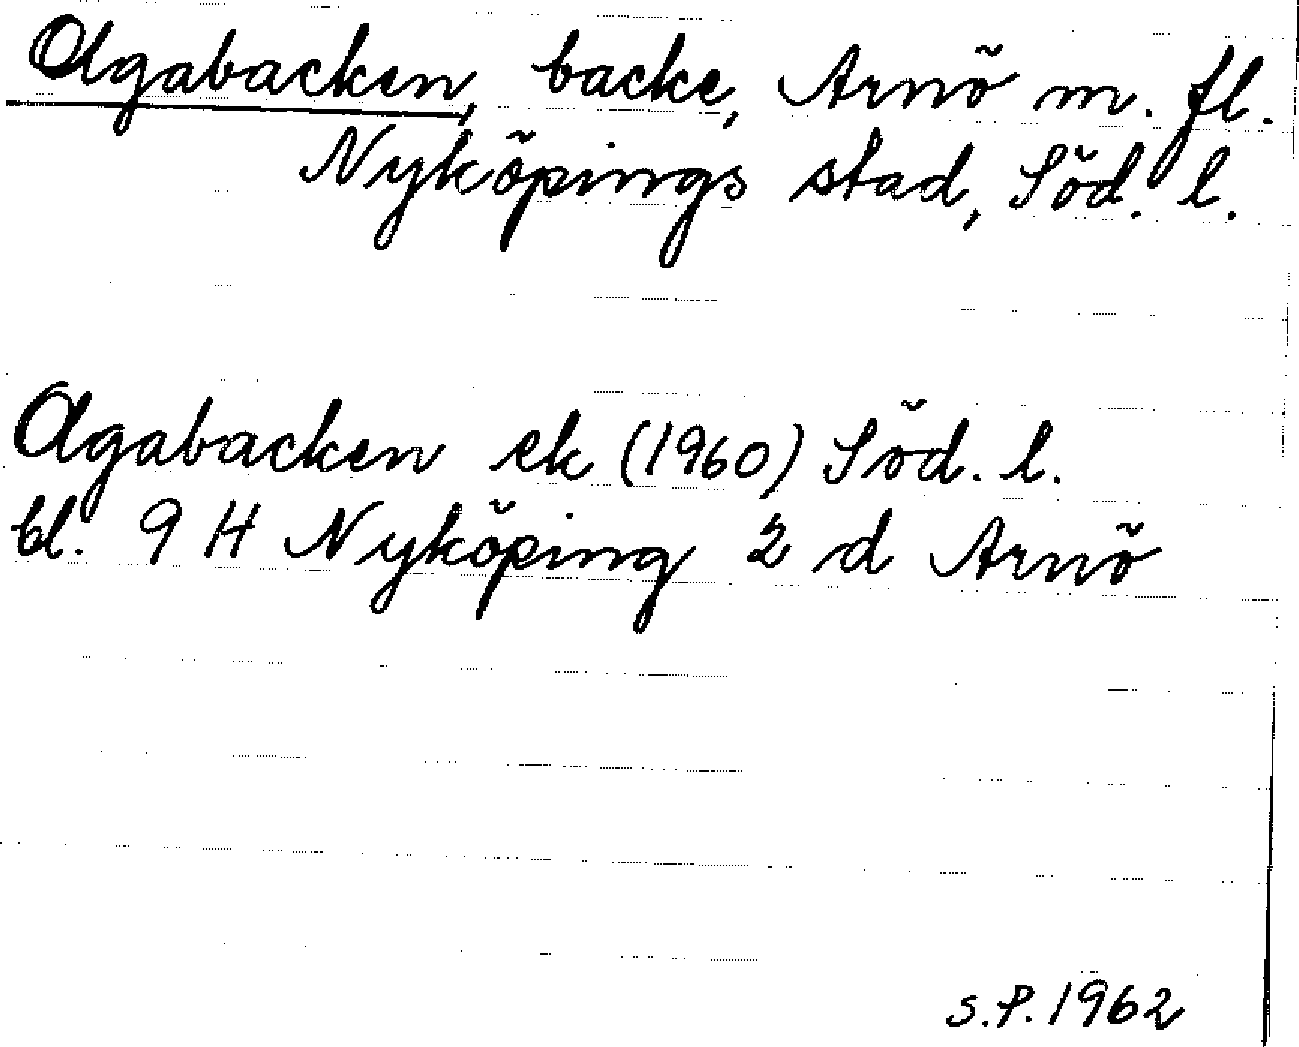 Agabacken, backe, Arnö m. fl.
Nyköpings stad, Söd. l.
Agabacken ek (1960) Söd. l.
bl. 9 H Nyköping 2 d Arnö
S.P. 1962